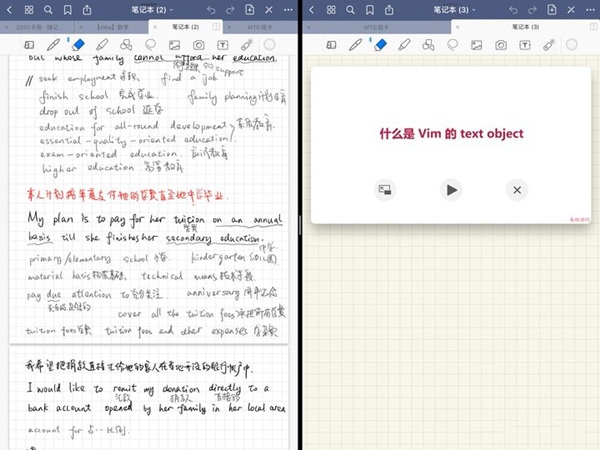 笔记本 (2)
2020手账 | 随记
【mba】数学
笔记本 (2)
but whose family cannot afford her education.
support
// seek employment 求职 find a job
finish school 完成学业 family planning 计划生育
drop out of school 退学
education for all-round development
essential-quality-oriented education. 素质教育.
exam-oriented education. 应试教育
higher education. 高等教育
My plan is to pay for her tuition on an annual
学费
basis till she finishes her secondary education.
中学
primary/elementary school 小学. kindergarten (幼儿园).
material basis 物质基础, technical means 技术手段.
pay due attention to 充分关注. anniversary 周年纪念
cover all the tuition fees
tuition fees 学费 tuition fees and other expenses 学杂费
I would like to remit my donation directly to a
汇款 捐款
bank account opened by her family in her local area
account for 占…比例
笔记本 (3)
MTG/绿卡
笔记本 (3)
什么是 Vim 的 text object